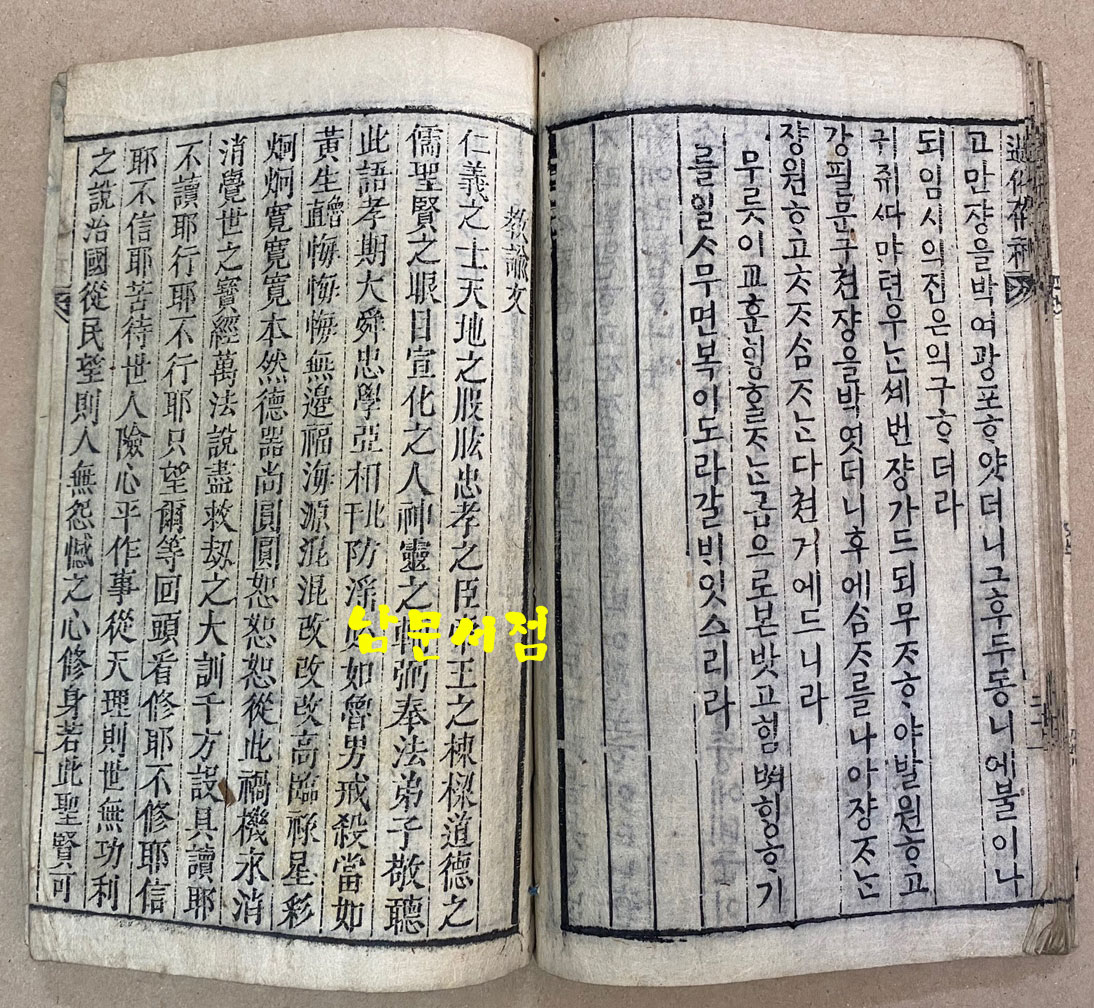 過化存神
고만쟝을박여광포ᄒᆞ얏더니그후두동니에불이나
되임시의진은의구ᄒᆞ더라
귀쥐ᄯᅡ마련우ᄂᆞᆫ셰번쟝가드되무ᄌᆞᄒᆞ야발원ᄒᆞ고
강필문구쳔쟝을박엿더니후에ᄉᆞᆷᄌᆞ를나아쟝ᄌᆞᄂᆞᆫ
쟝원ᄒᆞ고ᄎᆞᄌᆞᄉᆞᆷᄌᆞᄂᆞᆫ다쳔거에드니라
무릇이교훈ᄒᆡᆼᄒᆞᆯᄌᆞᄂᆞᆫ금으로본밧고힘ᄡᅥᄒᆡᆼᄒᆞ기
를일ᄉᆞ무면복이도라갈ᄇᆡ잇스리라
教諭文
仁義之士天地之股肱忠孝之臣帝王之棟樑道德之
儒聖賢之眼目宣化之人神靈之輔弼奉法弟子敬聽
此語孝期大舜忠學亞相刊防淫必如魯男戒殺當如
黃生悔悔悔無邊福海源混混改改改高臨祿星彩
炯炯寬寬寬本然德器尚圓圓恕恕恕從此禍機永消
消覺世之寶經萬法說盡救劫之大訓千方設具讀耶
不讀耶行耶不行耶只望爾等回頭看修耶不修耶信
耶不信耶苦待世人險心平作事從天理則世無功利
之說治國從民望則人無怨憾之心修身若此聖賢可
남문서점